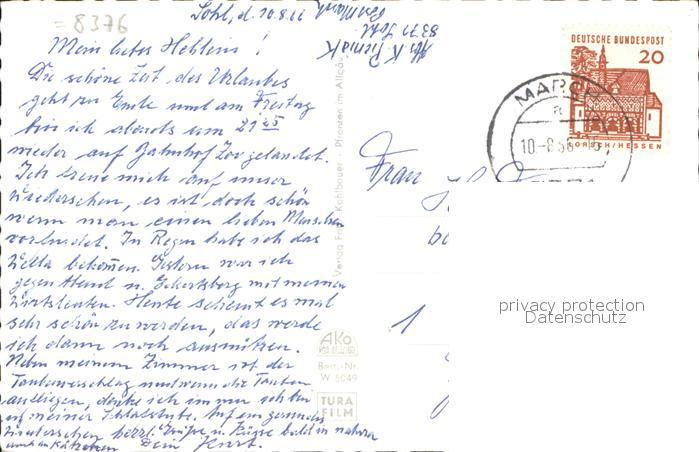 = 8376
Sohl, d. 10.8.66
8371 Sohl
Mein liebes Heblein!
Die schöne Zeit des Urlaubes
geht zu Ende und am Freitag
bin ich abends um 21 25
wieder auf Bahnhof Zoo gelandet.
Ich freue mich auf unser
Wiedersehen, es ist doch schön
wenn man einen lieben Menschen
vorfindet. In Regen habe ich das
Wella bekommen. Gestern war ich
gegen Abend n. Eckertsberg mit meinen
Wirtsleuten. Heute scheint es mal
sehr schön zu werden, das werde
ich dann noch ausnützen.
Neben meinem Zimmer ist der
Taubenverschlag und wenn die Tauben
ausfliegen, denke ich immer ich bin
in meiner Schlafstube. Auf ein gesundes
Wiedersehen herzl. Grüße u. Küsse bald in natura
Dein Kurt.
Verlag Franz Kohlbauer, Pfronten im Allgäu
AKO
Best.-Nr.
W 5049
TURA
FILM
DEUTSCHE BUNDESPOST
20
LORSCH/HESSEN
MARSCH
a
10-8.66
Frau
1
privacy protection
Datenschutz